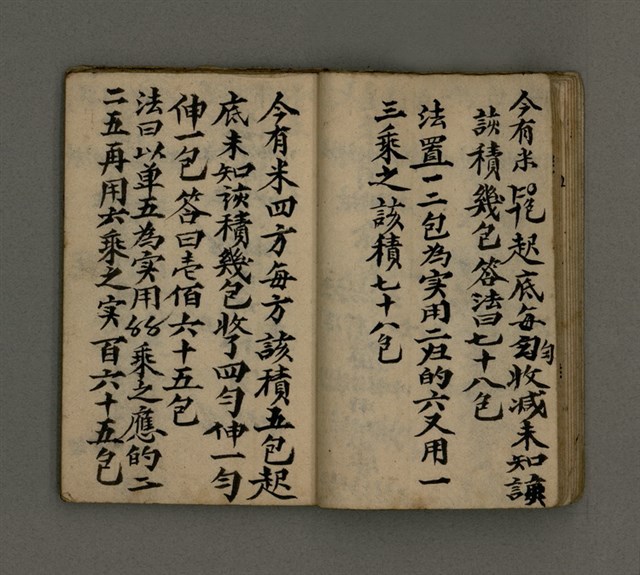 今有米包起底每匀收减未知該
該積幾包答法曰七十八包
法置一二包為实用二归的六又用一
三乘之該積七十八包
今有米四方每方該積五包起
底未知該積幾包收了四勻伸一勻
伸一包答曰壱佰六十五包
法曰以单五為实用乘之應的二
二五再用六乘之实百六十五包